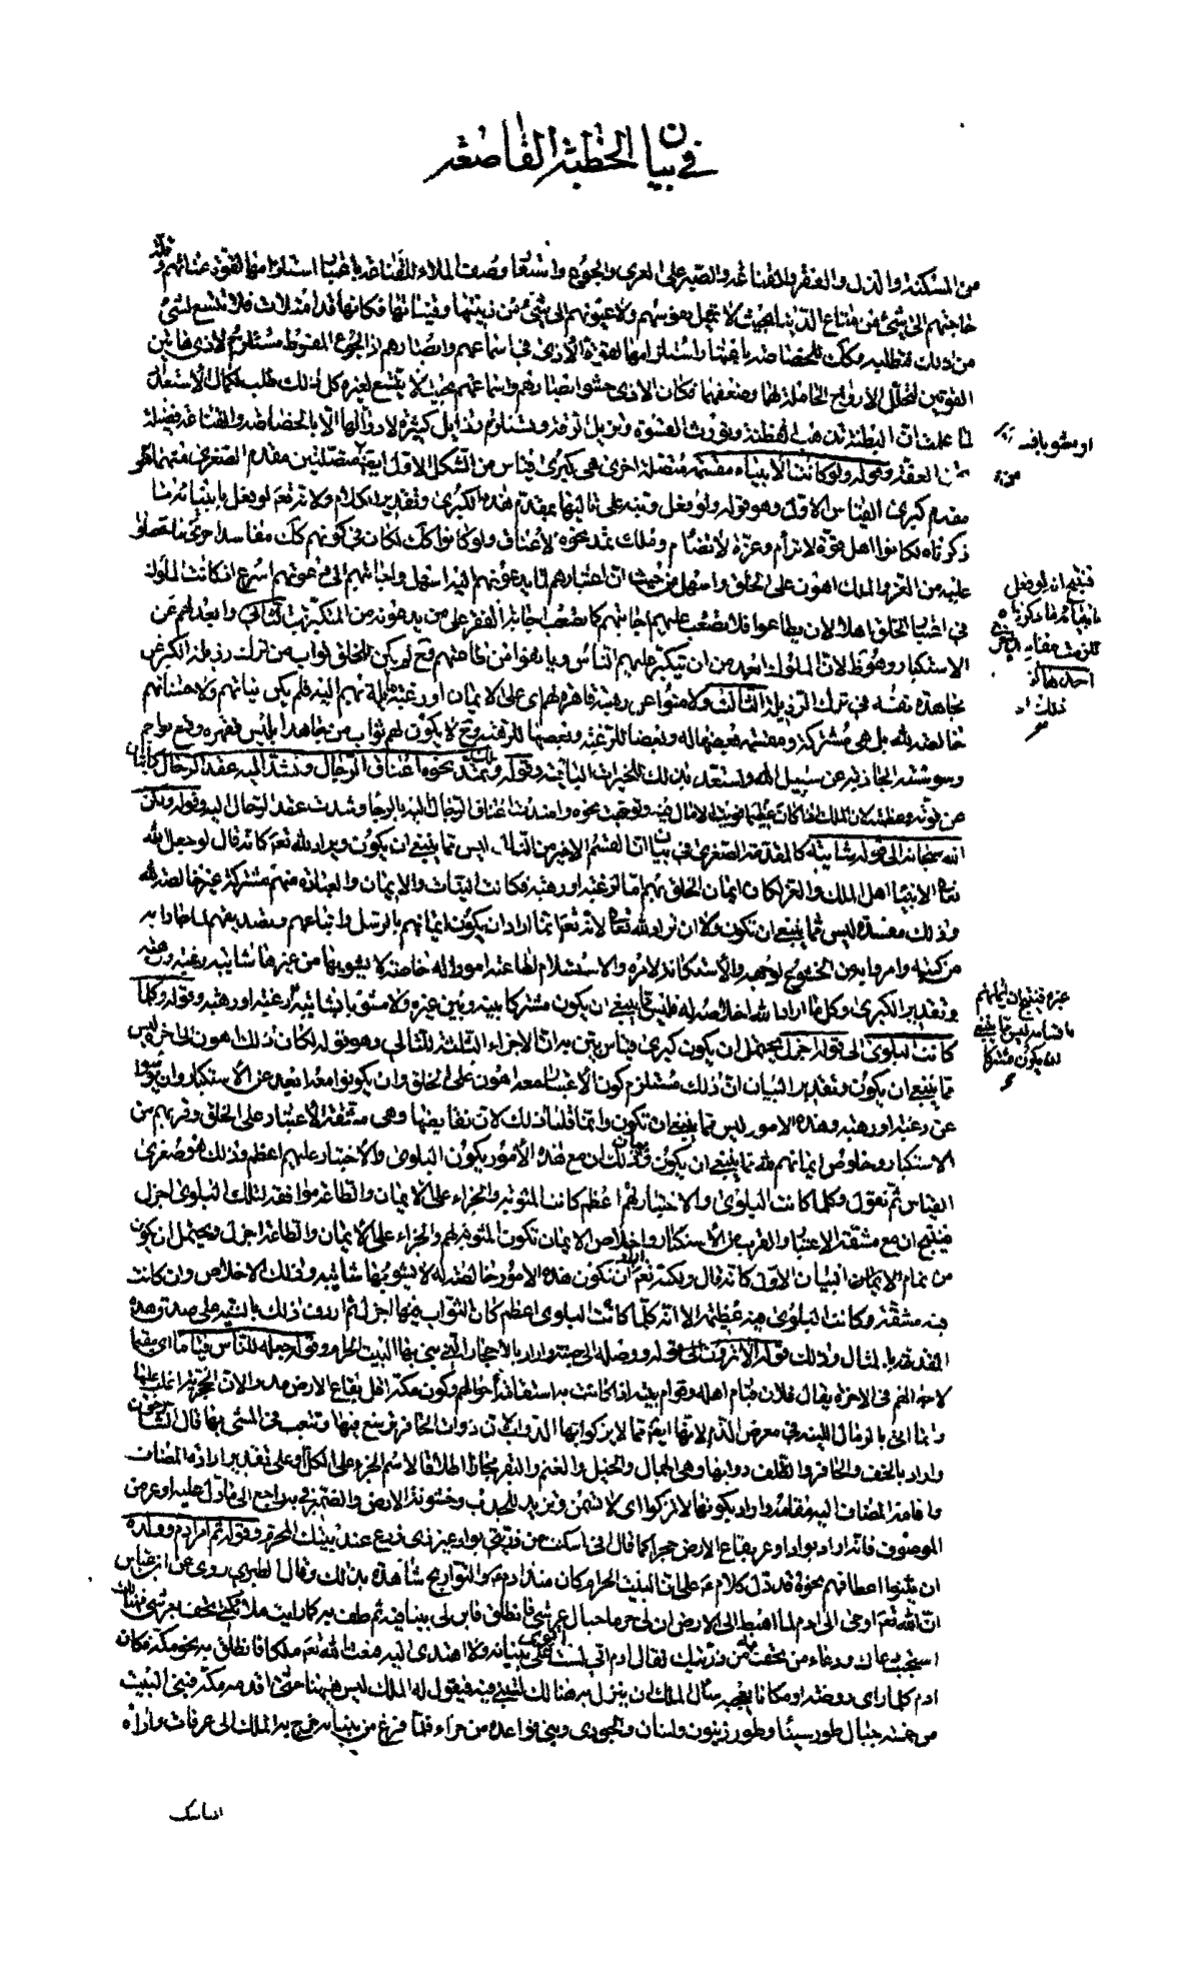 في بيان الخطبة القاصعة
من المسكنة والذل والفقر والقناعة والصبر على العرى والجوع واستعار وصف الملاء للقناعة باعتبار استلزامها لقوة غنائهم وقلة
حاجتهم الى شئ من متاع الدنيا بحيث لا تميل نفوسهم ولا عيونهم الى شئ من زينتها وقيناتها فكانها قد امتلات فلا تتسع لشئ
من ذلك فتطلبه وكك للخصاصة باعتبار استلزامها لقوة الأذى في اسماعهم وابصارهم اذ الجوع المفرط مستلزم لاذى هاتين
القوتين لتحلل الارواح الحاملة لهما وضعفهما فكان الاذى حشو ابصارهم واسماعهم بحيث لا يتسع لغيره كل ذلك طلب لكمال الاستعداد
لما علمت ان البطنة تذهب الفطنة وتورث القسوة وتزيل الرقة وتستلزم رذايل كثيرة لا زوال لها الا بالخصاصة والقناعة فضيلة
تحت العفة وقوله ولو كانت الأنبياء مقدمة متصلة اخرى هي كبرى قياس من الشكل الاول ايضا من متصلتين مقدم الصغرى منهما هو
مقدم كبرى القياس الاول وهو قوله ولو فعل ونبه على تاليها بمقدم هذه الكبرى وتقدير الكلام ولانه تعم لو فعل بانبيائه ما
ذكرناه لكانوا اهل قوة لا ترام وعزة لا تضام وملك تمتد نحوه الأعناق ولو كانوا كك لكان في كونهم كك مفاسد احديها ما حصلوا
عليه من العز والملك اهون على الخلق واسهل من حيث ان اعتبارهم لما يدعونهم اليه اسهل واجابتهم الى دعوتهم اسرع اذ كانت الملوك
في اعتبار الخلق اهلا لان يطاعوا فلا تصعب عليهم اجابتهم كما تصعب اجابة الفقر على من يدعونه من المتكبرين الثاني وابعد لهم عن
الاستكبار وهو ظ لان الملوك ابعد من ان يتكبر عليهم الناس ويابوا من طاعتهم وح لم يكن للخلق ثواب من ترك رذيلة الكبر عن
مجاهدة نفسه في ترك الرذيلة الثالث ولامنوا عن رهبة قاهرة لهم اى على الايمان او رغبة مايلة بهم اليه فلم يكن نياتهم ولا حسناتهم
خالصة لله بل هي مشتركة ومقتسمة فبعضها له وبعضها للرغبة وبعضها للرهبة وح لا يكون لهم ثواب من جاهد ابليس فقهره وقمع نواجم
وسوسته الجاذبة عن سبيل الله واستعد بذلك للخيرات الباقية وقوله وتمتد نحوه اعناق الرجال وتشد اليه عقد الرحال كنايتان
عن قوته وعظمته لان الملك اذا كان عظيما قويت الامال فيه وتوجهت نحوه وامتدت اعناق الرجال اليه بالرجا وشدت عقد الرحال اليه وقوله ولكن
الله سبحانه الى قوله شايبة كالمقدمة الصغرى في بيان ان القسم الاخير من التالى ليس مما ينبغي ان يكون ويراد لله تعم كانه قال لو جعل الله
تعالى الانبيا اهل الملك والعز لكان ايمان الخلق بهم اما لرغبة او رهبة فكانت النيات والايمان والعبادة منهم مشتركة غير خالصة لله
وذلك مفسدة ليس مما ينبغي ان تكون ولا ان تراد لله تعالى لانه تعم انما اراد ان يكون ايمانهم بالرسل واتباعهم وتصديقهم لما جاوا به
من كتبه وامر ما بدين الخشوع لوجهه والاستكانة لامره والاستسلام لطاعته امورا له خاصة لا يشوبها من غيرها شايبة رغبة ورهبة
وتقدير الكبرى وكل ما اراد الله اخلاصه له فليس مما ينبغي ان يكون مشتركا بينه وبين غيره ولا مشوبا بشايبة رغبة او رهبة وقوله وكلما
كانت البلوى الى قوله اجزل يحتمل ان يكون كبرى قياس يتبين به ان الاجزاء الثلثة للتالي وهو قوله لكان ذلك اهون الى اخره ليس
مما ينبغي ان يكون وتقدير البيان ان ذلك مستلزم كون الأعتبار معه اهون على الخلق وان يكونوا معه ابعد عن الأستكبار وان يؤمنوا
عن رغبة او رهبة وهذه الامور ليس مما ينبغي ان تكون وانما قلنا ذلك لان نقايضها وهي مشقة الأعتبار على الخلق وقربهم من
الاستكبار وخلوص ايمانهم لله مما ينبغي ان يكون وبيان ذلك ان مع هذه الأمور يكون البلوى والأختبار عليهم اعظم وذلك هو صغرى
القياس ثم نقول وكلما كانت البلوى والاختبار لهم اعظم كانت المثوبة والجزاء على الايمان والطاعة موافقة لتلك البلوى اجزل
فينتج ان مع مشقة الاعتبار والقرب من الأستكبار واخلاص الايمان تكون المثوبة لهم والجزاء على الأيمان والطاعة اجزل ويحتمل ان يكون
من تمام الايمان البيان الاول كانه قال ولكنه تعم اراد ان تكون هذه الامور خالصة له لا يشوبها شايبة وذلك الاخلاص وان كانت
فيه مشقة وكانت البلوى فيه عظيمة الا انه كلما كانت البلوى اعظم كان الثواب فيها اجزل ثم اردف ذلك بالتنبيه على صدق هذه
المقدمة بالمثال وذلك قوله الا ترون الى قوله ووصلة الى جنته واراد بالاحجار التي بنى بها البيت الحرام وقوله جعله للناس قياما اى مقيما
لاحوالهم في الاخرة يقال فلان قيام اهله وقوام بيته اذا كانت به استقامة أحوالهم وكون مكة اقل بقاع الارض مدرا لان الحجرية اغلب عليها
وانما اتى بالرمال اللينة في معرض الذم لانها ايضا مما لا يزكوا بها الدواب لان ذوات الحافر ترسغ فيها وتتعب في المشى بها قال الشارحون
واراد بالخف والحافر والظلف دوابها وهي الجمال والخيل والغنم والبقر مجازا اطلاقا لاسم الجزء على الكل او على تقدير ارادة المضاف
واقامة المضاف اليه مقامه واراد بكونها لا تزكوا اى لا تسمن وتزيد للجدب وخشونة الارض والضمير في به راجع الى ما دل عليه اوعر من
الموصوف فانه اراد بواد اوعر بقاع الارض حجرا كما قال انى اسكنت من ذريتي بواد غير ذى زرع عند بيتك المحرم وقوله ثم امر ادم وولده
ان يثنوا اعطافهم نحوه قد دل كلامه ع على ان البيت الحرام كان منذ ادم ع والتواريخ شاهدة بذلك وقال الطبري روى عن ابن عباس
ان الله تعم اوحى الى ادم لما اهبط الى الارض ان لي حرما حيال عرشي فانطلق فابن لي بيتا فيه ثم طف به كما رايت ملائكتي تحف بعرشي فهناك
استجيب دعاك ودعاء من يحف به من ذريتك فقال ادم انى لست اقوى على بنيانه ولا اهتدى اليه فبعث الله تعم ملكا فانطلق به نحو مكة فكان
ادم كلما راى روضة او مكانا يعجبه سال الملك ان ينزل به هنالك ليبنى فيه فيقول له الملك ليس هيهنا حتى اقدمه مكة فبنى البيت
من خمسة جبال طور سينا وطور زيتون ولبنان والجودى وبنى قواعده من حراء فلما فرغ من بنيانه خرج به الملك الى عرفات واراه
او مشوبا فيه
فينتج انه لو فعل
بانبيائه ما ذكرناه
لزمت مفاسد
احديها كذ
غيره فينتج ان ايمانهم
ما شابه ليس مما ينبغي
ان يكون مشتركا
المناسك